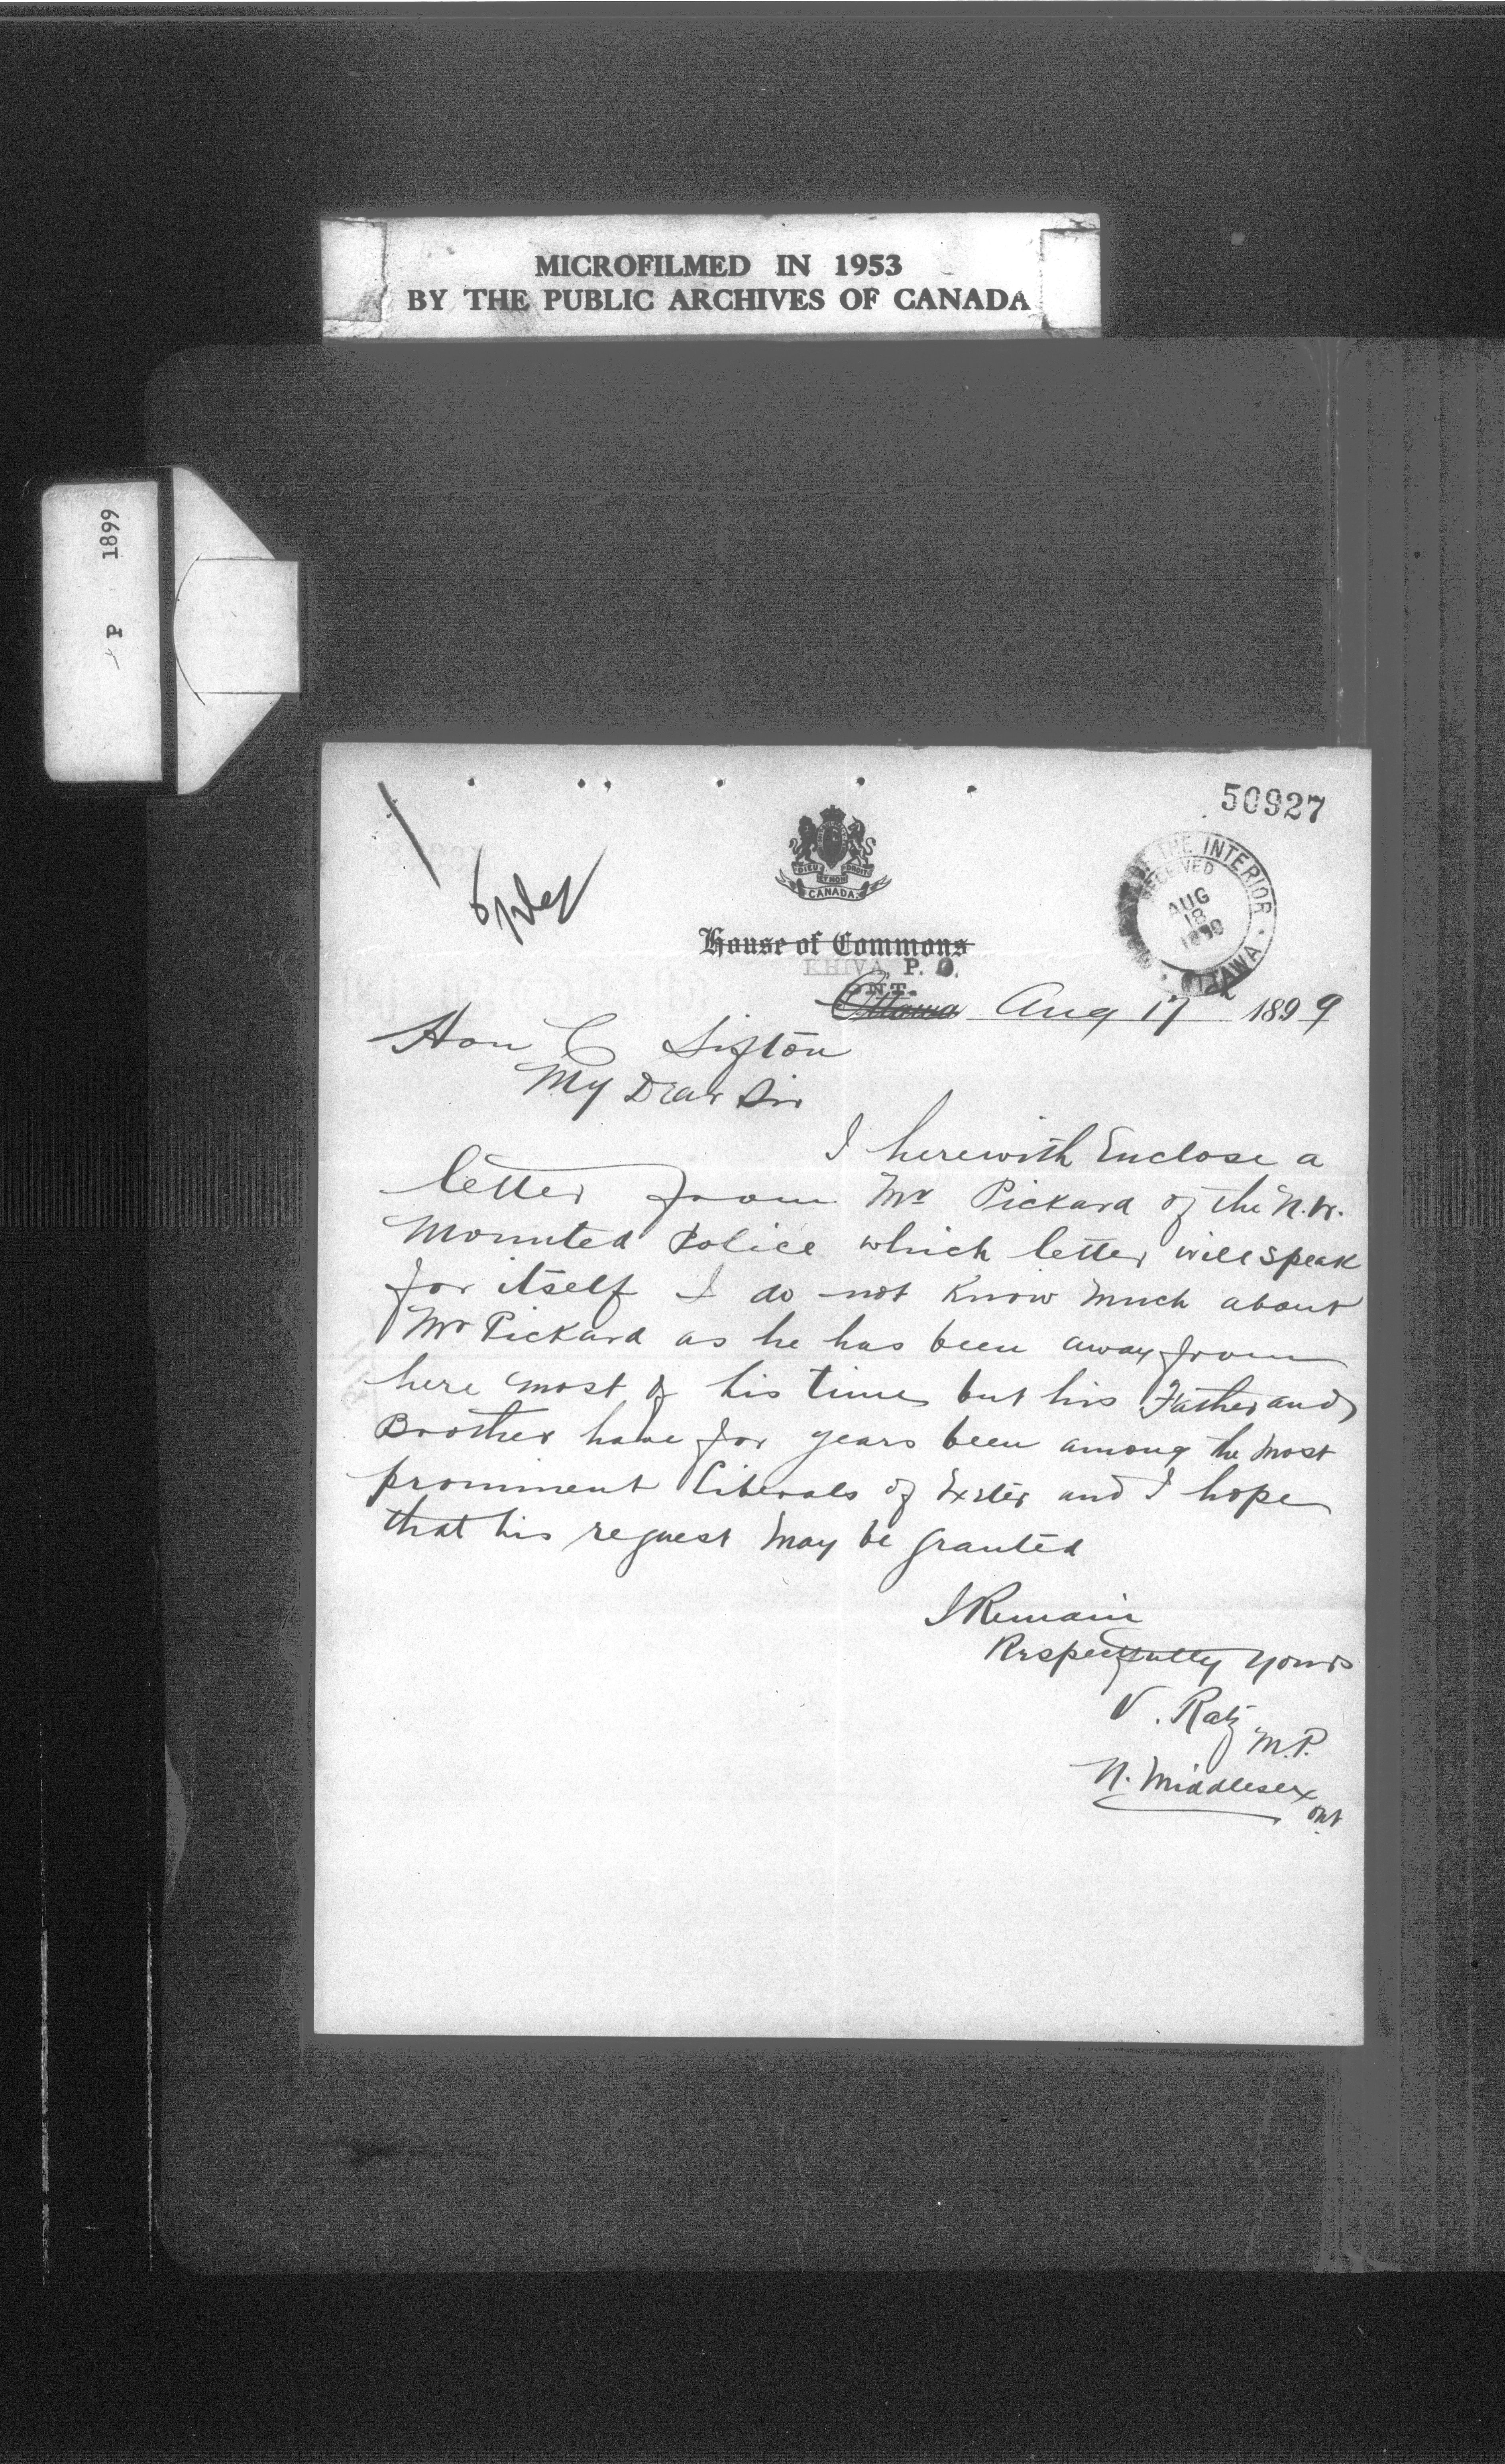 MICROFILMED IN 1953
BY THE PUBLIC ARCHIVES OF CANADA
P 1899
50927
DIEU ET MON DROIT
CANADA
THE INTERIOR
RECEIVED
AUG
18
1899
OTTAWA
House of Commons
KHIVA P. O.
ONT.
Ottawa Aug 17 1899
Hon C Sifton
My Dear Sir
I herewith Enclose a
letter from Mr Pickard of the N.W.
Mounted Police which letter will speak
for itself I do not Know much about
Mr Pickard as he has been away from
here most of his time but his Father and
Brother have for years been among the most
prominent Liberals of Exeter and I hope
that his request may be granted
I Remain
Respectfully Yours
V. Ratz M.P.
N. Middlesex
Ont